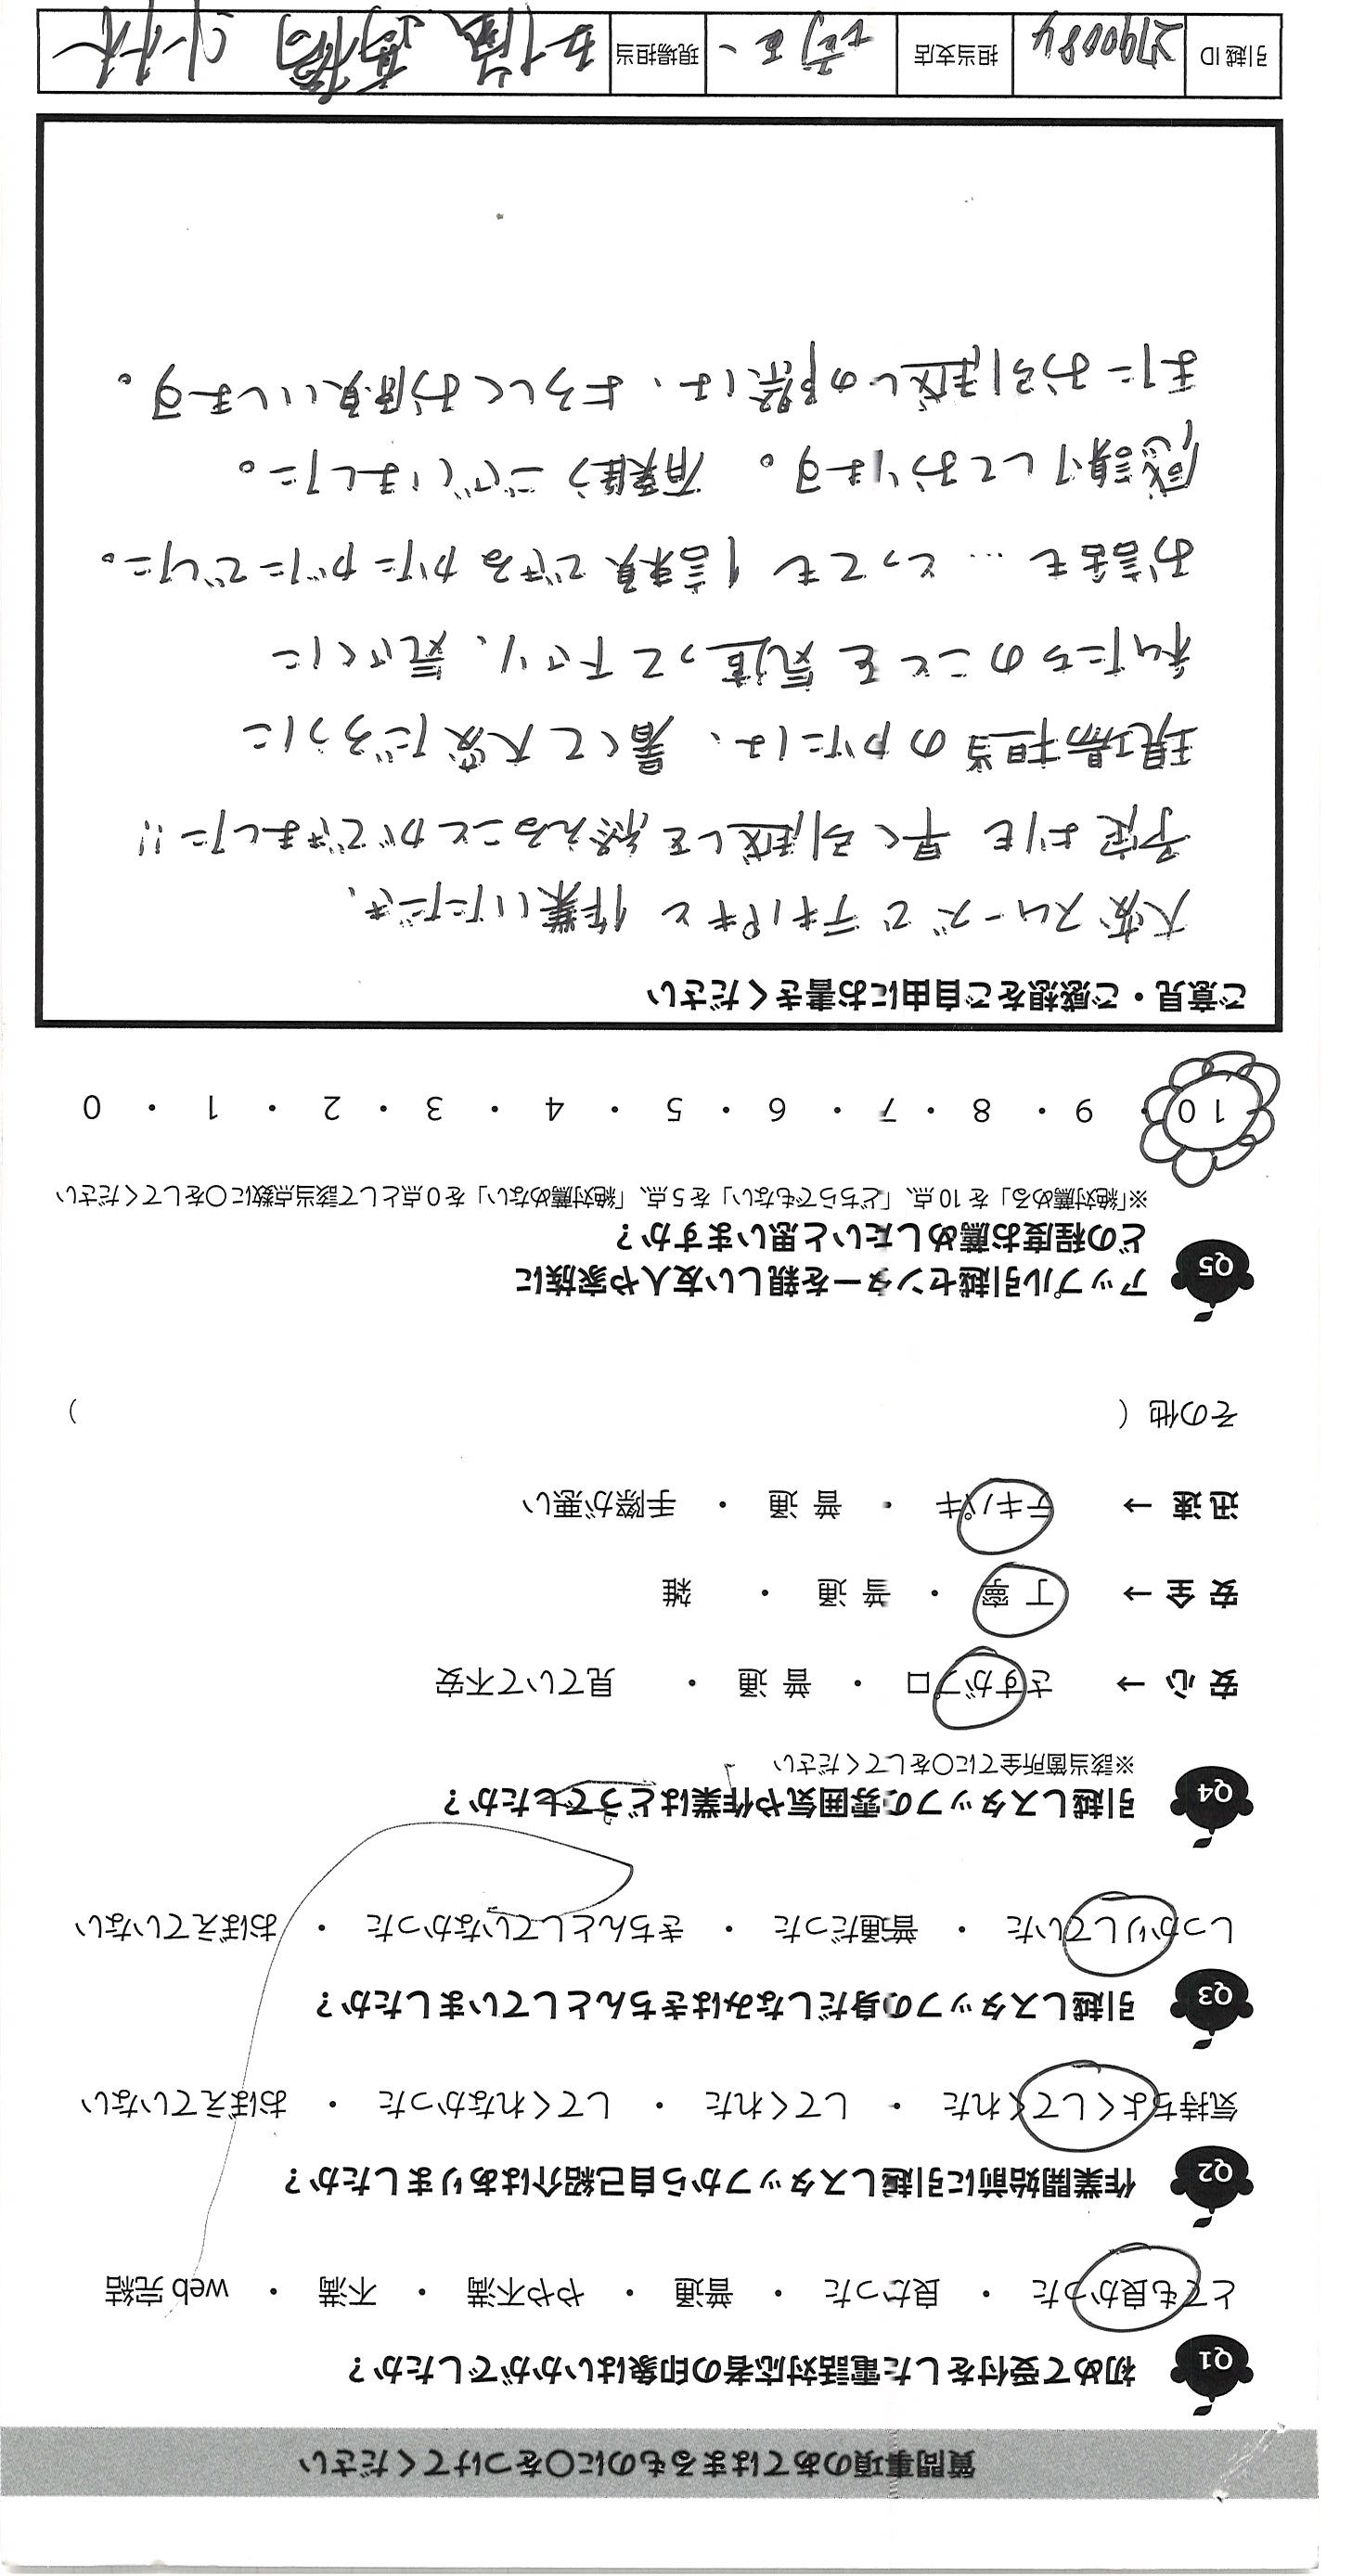 質問事項のあてはまるものに○をつけてください
Q1 初めて受付をした電話対応者の印象はいかがでしたか？
とても良かった ・ 良かった ・ 普通 ・ やや不満 ・ 不満 ・ web完結
Q2 作業開始前に引越しスタッフから自己紹介はありましたか？
気持ちよくしてくれた ・ してくれた ・ してくれなかった ・ おぼえていない
Q3 引越しスタッフの身だしなみはきちんとしていましたか？
しっかりしていた ・ 普通だった ・ きちんとしていなかった ・ おぼえていない
Q4 引越しスタッフの雰囲気や作業はどうでしたか？
※該当箇所全てに○をしてください
安心 → さすがプロ ・ 普通 ・ 見ていて不安
安全 → 丁寧 ・ 普通 ・ 雑
迅速 → テキパキ ・ 普通 ・ 手際が悪い
その他（ ）
Q5 アップル引越センターを親しい友人や家族に
どの程度お薦めしたいと思いますか？
※「絶対薦める」を10点、「どちらでもない」を5点、「絶対薦めない」を0点として該当点数に○をしてください
10 ・ 9 ・ 8 ・ 7 ・ 6 ・ 5 ・ 4 ・ 3 ・ 2 ・ 1 ・ 0
ご意見・ご感想をご自由にお書きください
大変スムーズでテキパキと作業いただき、
予定よりも早く引越しを終えることができました!!
現場担当のかたは、暑くて大変だろうに
私たちのことを気遣って下さり、気さくに
お話も…とっても信頼できるかたがたでした。
感謝しております。有難うございました。
またお引越しの際は、よろしくお願いします。
引越ID 2790084 担当支店 現場担当 高橋 小林